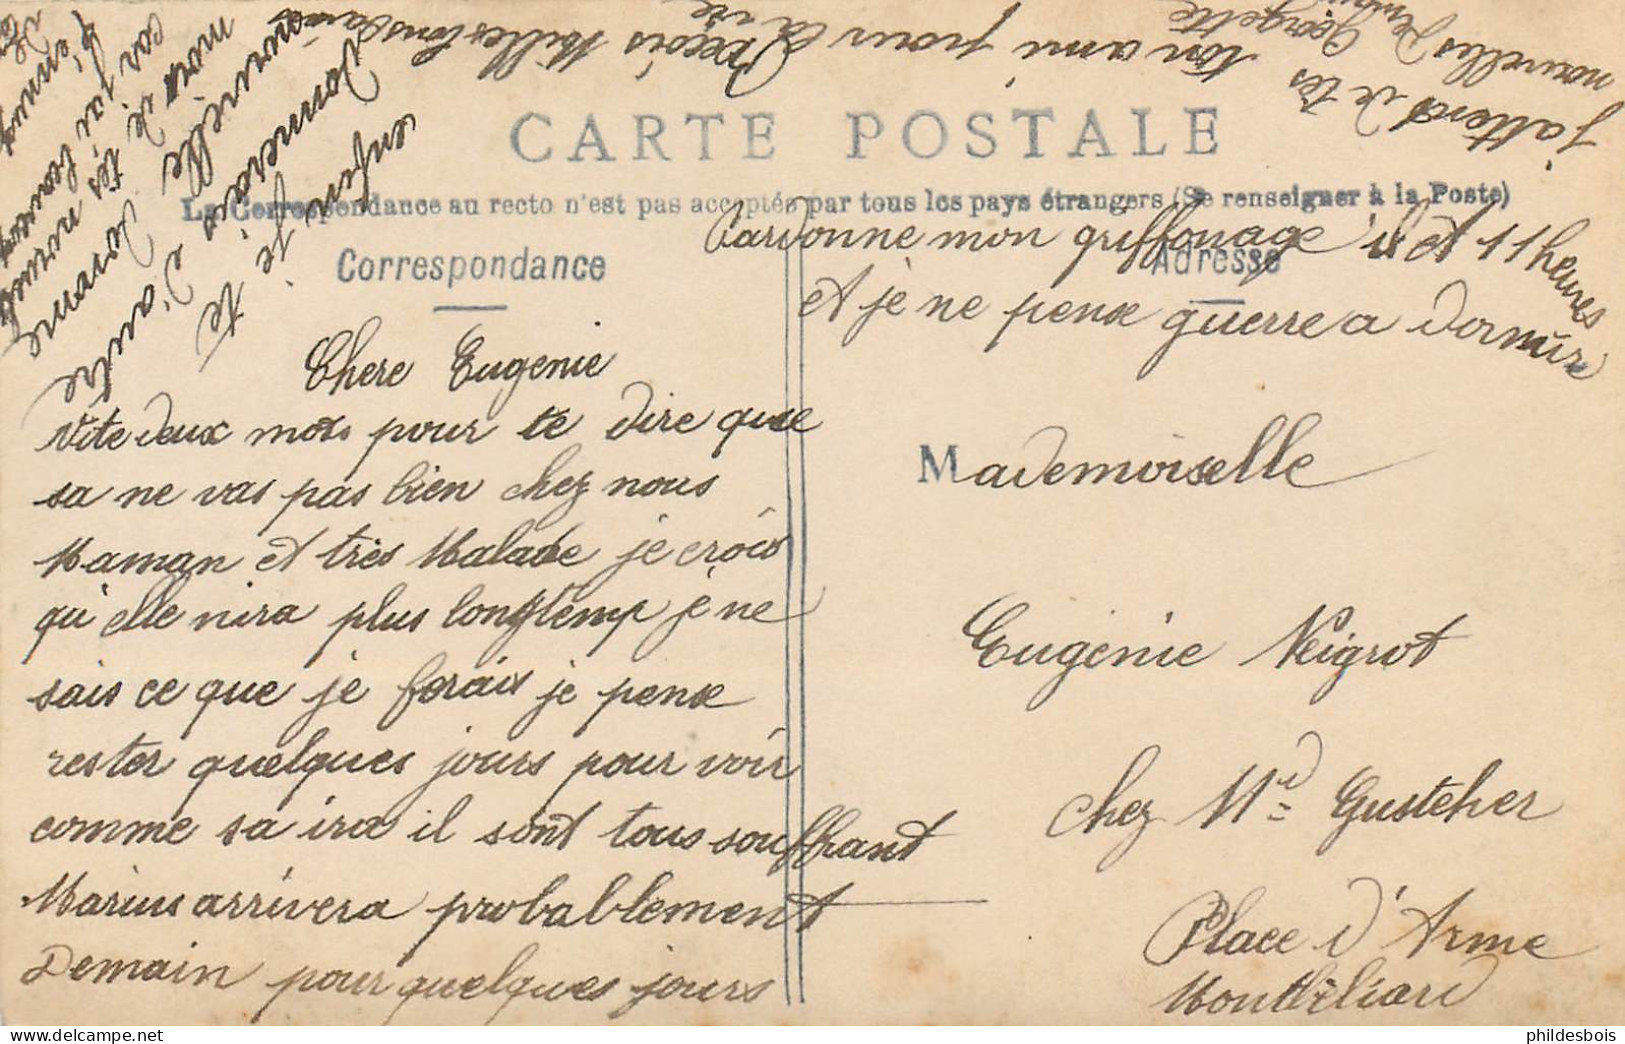 CARTE POSTALE
La Correspondance au recto n'est pas acceptés par tous les pays étrangers (Se renseigner à la Poste)
Correspondance
Adresse
Chere Eugenie
Vite deux mots pour te dire que
sa ne vas pas bien chez nous
Maman et très Malade je crois
qu'elle nira plus longtemp je ne
sais ce que je ferais je pense
rester quelques jours pour voir
comme sa ira il sont tous souffrant
Marius arrivera probablement
Demain pour quelques jours
enfin je te
donnerais d'autre
nouvelle
mois de tes
car j'ai
Pardonne mon griffonage il et 11 heures
et je ne pense guerre a dormire
Mademoiselle
Eugenie Neigrot
chez Md Gusteher
Place d'Arme
Montbeliard
j'attend de tes
nouvelles
ton ami pour la vie
Georgette
Reçois Mille
phildesbois.com